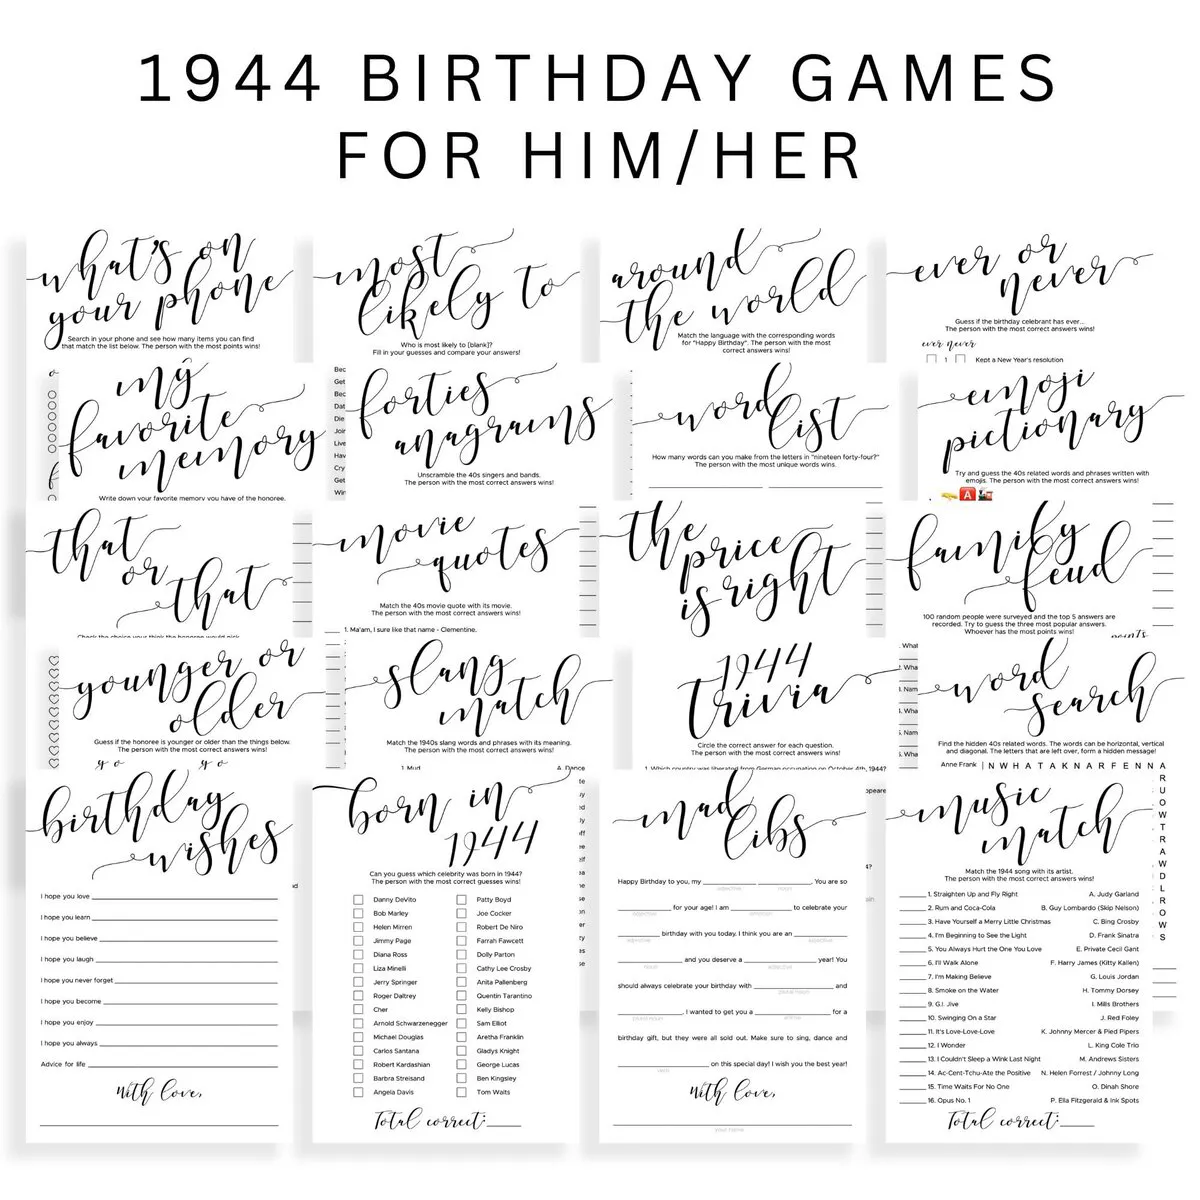 1944 BIRTHDAY GAMES
FOR HIM/HER
what's on
your phone
Search in your phone and see how many items you can find
that match the list below. The person with the most points wins!
most
likely to
Who is most likely to [blank]?
Fill in your guesses and compare your answers!
around
the world
Match the language with the corresponding words
for "Happy Birthday". The person with the most
correct answers wins!
ever or
never
Guess if the birthday celebrant has ever...
The person with the most correct answers wins!
ever never
1 Kept a New Year's resolution
my
favorite
memory
Write down your favorite memory you have of the honoree.
Bec
Get
Bec
Dat
Die
Join
Live
Hav
Cry
Get
Win
forties
anagrams
Unscramble the 40s singers and bands.
The person with the most correct answers wins!
word
list
How many words can you make from the letters in "nineteen forty-four?"
The person with the most unique words wins.
emoji
pictionary
Try and guess the 40s related words and phrases written with
emojis. The person with the most correct answers wins!
that
or
that
Check the choice your think the honoree would pick.
movie
quotes
Match the 40s movie quote with its movie.
The person with the most correct answers wins!
1. Ma'am, I sure like that name - Clementine.
the
price
is right
family
feud
100 random people were surveyed and the top 5 answers are
recorded. Try to guess the three most popular answers.
Whoever has the most points wins!
points
younger or
older
Guess if the honoree is younger or older than the things below.
The person with the most correct answers wins!
y o y o
slang
match
Match the 1940s slang words and phrases with its meaning.
The person with the most correct answers wins!
1. Mud A. Dance
1944
trivia
Circle the correct answer for each question.
The person with the most correct answers wins!
1. Which country was liberated from German occupation on October 4th, 1944?
. What
. Wha
. Nam
. Wha
. Wha
word
search
Find the hidden 40s related words. The words can be horizontal, vertical
and diagonal. The letters that are left over, form a hidden message!
Anne Frank N W H A T A K N A R F E N N A
R
U
O
W
T
R
A
W
D
L
R
O
W
S
birthday
wishes
I hope you love
I hope you learn
I hope you believe
I hope you laugh
I hope you never forget
I hope you become
I hope you enjoy
I hope you always
Advice for life
With love,
born in
1944
Can you guess which celebrity was born in 1944?
The person with the most correct guesses wins!
Danny DeVito Patty Boyd
Bob Marley Joe Cocker
Helen Mirren Robert De Niro
Jimmy Page Farrah Fawcett
Diana Ross Dolly Parton
Liza Minelli Cathy Lee Crosby
Jerry Springer Anita Pallenberg
Roger Daltrey Quentin Tarantino
Cher Kelly Bishop
Arnold Schwarzenegger Sam Elliot
Michael Douglas Aretha Franklin
Carlos Santana Gladys Knight
Robert Kardashian George Lucas
Barbra Streisand Ben Kingsley
Angela Davis Tom Waits
Total correct:
mad
libs
Happy Birthday to you, my ______ ______. You are so
adjective noun
______ for your age! I am ______ to celebrate your
adjective emotion
______ birthday with you today. I think you are an ______
adjective adjective
______ and you deserve a ______ year! You
noun adjective
should always celebrate your birthday with ______ and
plural noun
______. I wanted to get you a ______ for a
plural noun animal
birthday gift, but they were all sold out. Make sure to sing, dance and
______ on this special day! I wish you the best year!
verb
With love,
your name
music
match
Match the 1944 song with its artist.
The person with the most correct answers wins!
1. Straighten Up and Fly Right A. Judy Garland
2. Rum and Coca-Cola B. Guy Lombardo (Skip Nelson)
3. Have Yourself a Merry Little Christmas C. Bing Crosby
4. I'm Beginning to See the Light D. Frank Sinatra
5. You Always Hurt the One You Love E. Private Cecil Gant
6. I'll Walk Alone F. Harry James (Kitty Kallen)
7. I'm Making Believe G. Louis Jordan
8. Smoke on the Water H. Tommy Dorsey
9. G.I. Jive I. Mills Brothers
10. Swinging On a Star J. Red Foley
11. It's Love-Love-Love K. Johnny Mercer & Pied Pipers
12. I Wonder L. King Cole Trio
13. I Couldn't Sleep a Wink Last Night M. Andrews Sisters
14. Ac-Cent-Tchu-Ate the Positive N. Helen Forrest / Johnny Long
15. Time Waits For No One O. Dinah Shore
16. Opus No. 1 P. Ella Fitzgerald & Ink Spots
Total correct: